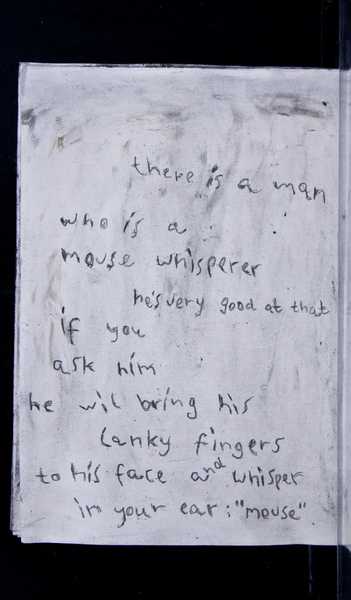 there is a man
who is a
mouse whisperer
he's very good at that
if you
ask him
he wil bring his
lanky fingers
to his face and whisper
in your ear: "mouse"